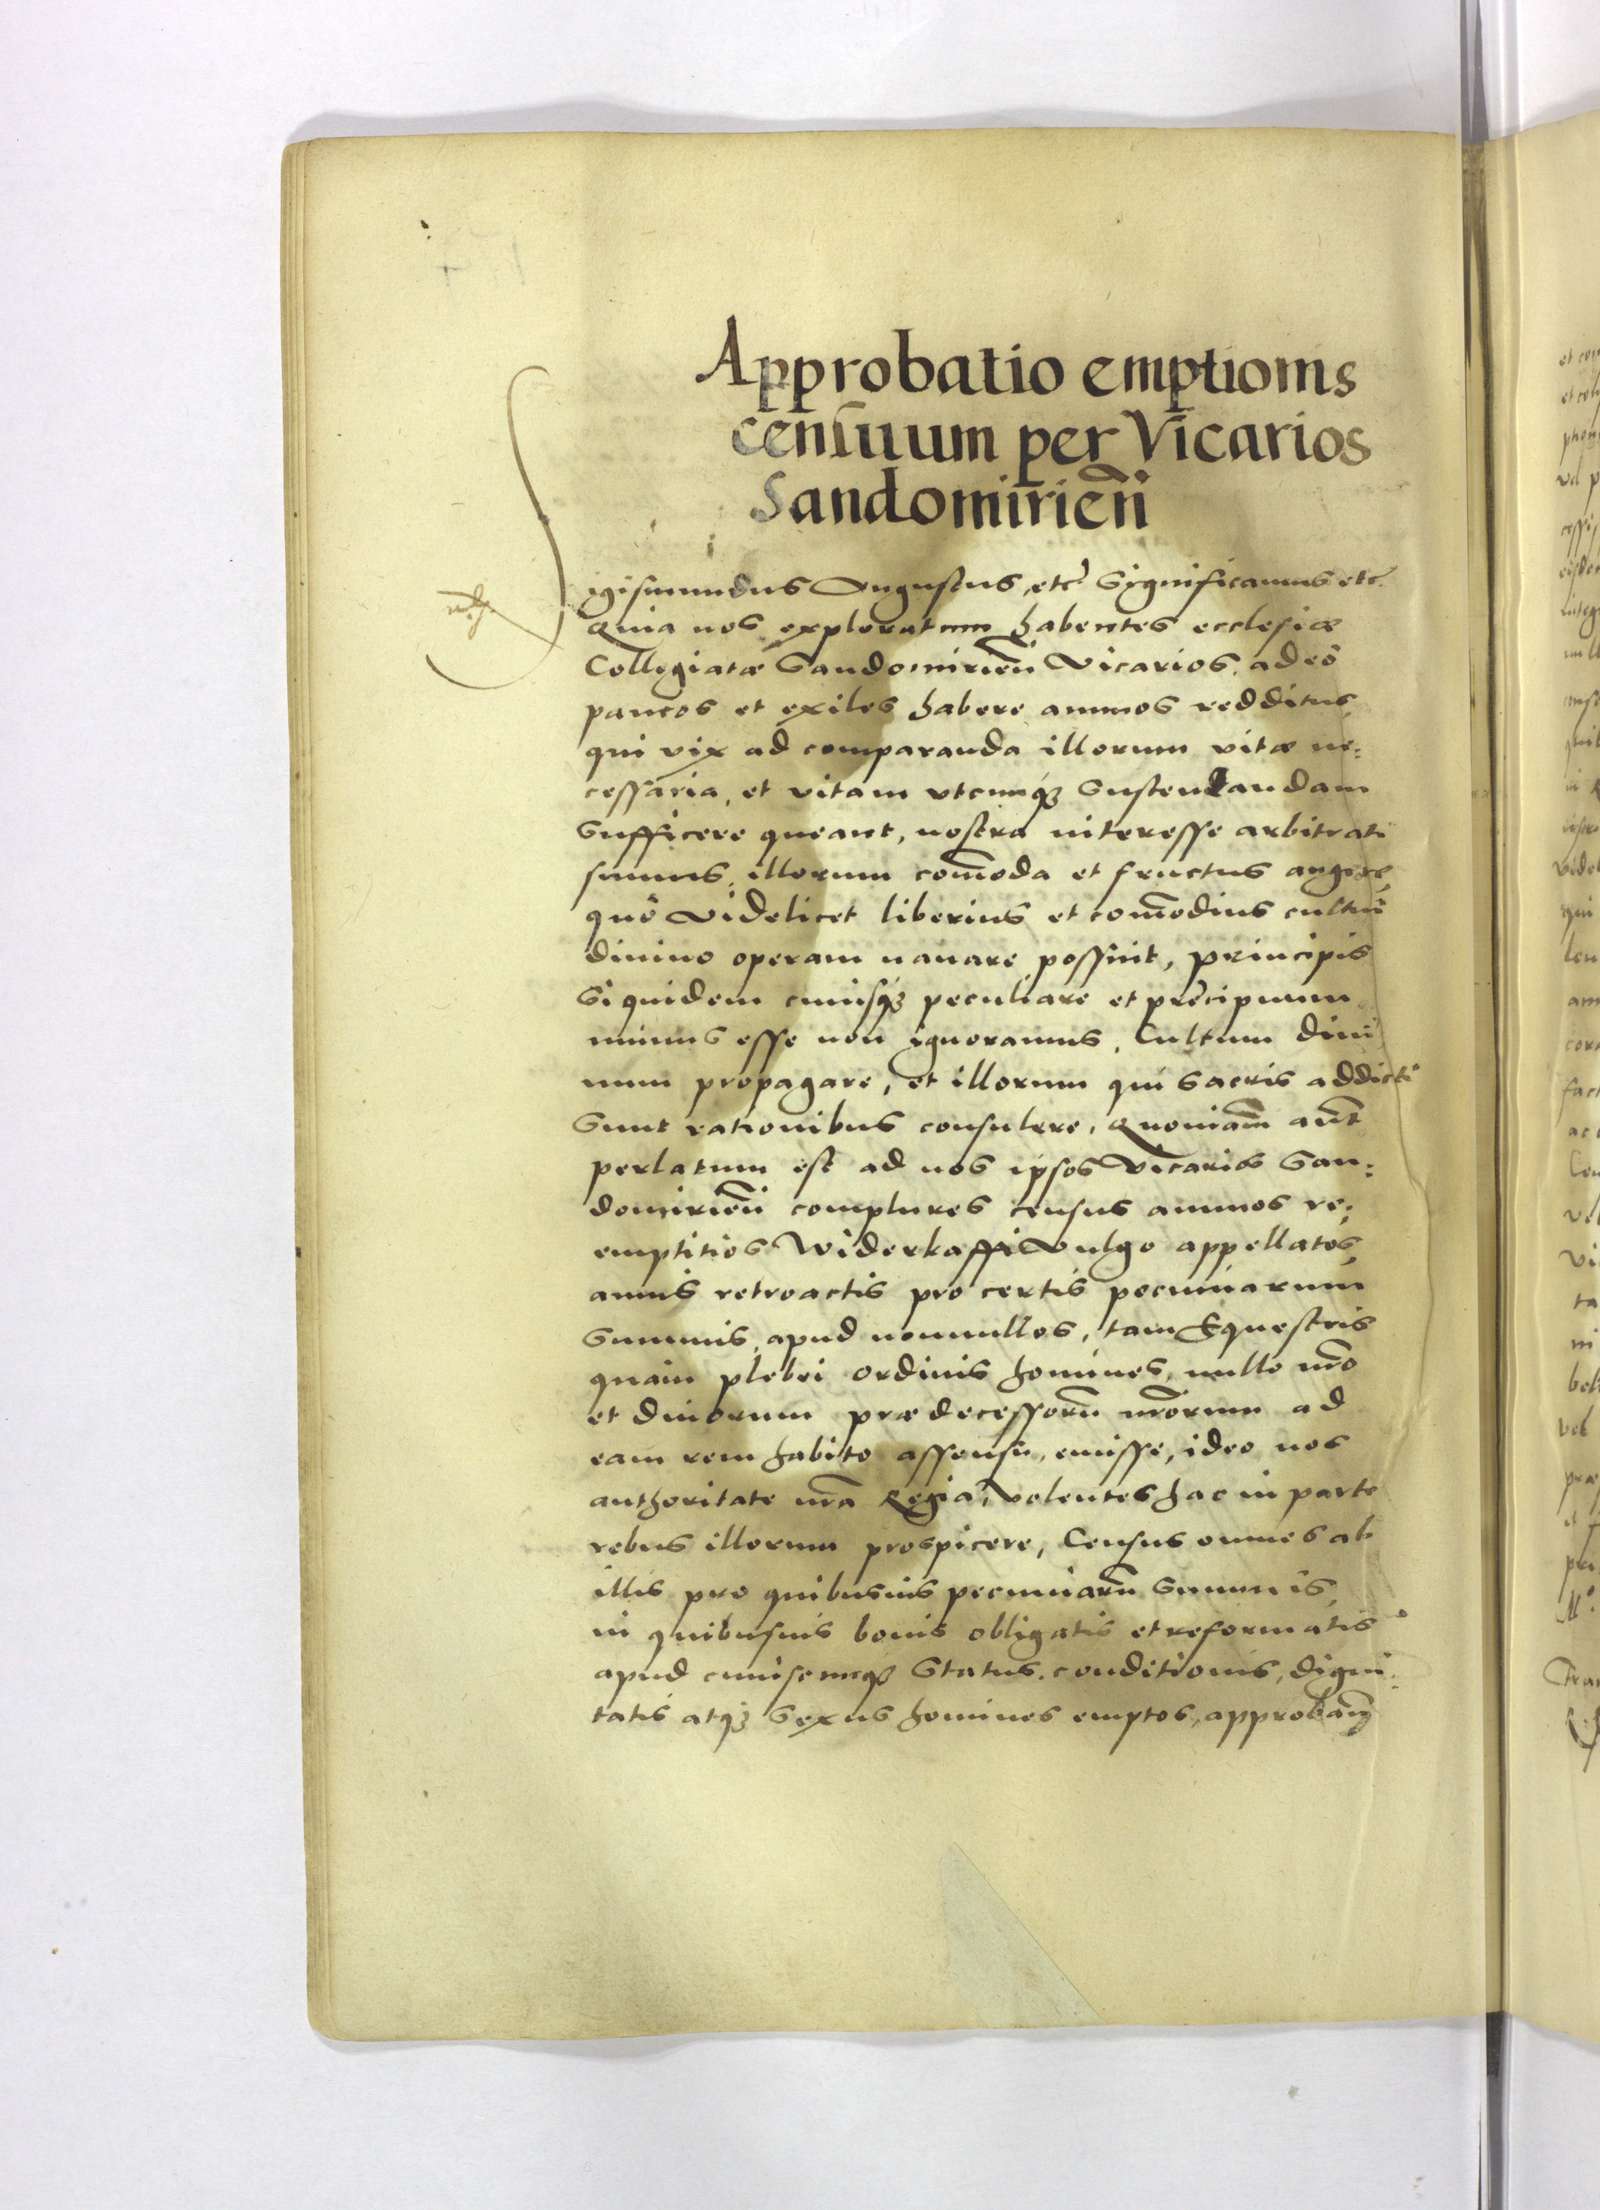 Approbatio emptionis
censuum per Vicarios
Sandomirien̄
Sigismundus Augustus, etc̄ Significamus etc̄
Quia nos exploratum habentes ecclesiæ
Collegiatæ Sandomirien̄ Vicarios, adeò
paucos et exiles habere annuos redditus,
qui vix ad comparanda illorum vitæ ne:
cessaria, et vitam utcunq3 sustentandam
sufficere queant, nostra interesse arbitrati
sumus, illorum com̄oda et fructus augere,
quò videlicet liberius et com̄odius cultui
divino operam navare possint, principis
siquidem cuiusq3 peculiare et prēcipuum
munus esse non ignoramus, Cultum divi
num propagare, et illorum qui sacris addicti
sunt rationibus consulere, Quoniam̄ aūt
perlatum est ad nos ipsos Vicarios San:
domirien̄ complures census annuos re:
emptitios Widerkaffi vulgo appellatos,
annis retroactis pro certis pecuniarum
summis, apud nonnullos, tam Equestris
quàm plebei ordinis homines, nullo nr̄o
et divorum prædecessorū nr̄orum ad
eam rem habito assensu, emisse, ideo nos
authoritate nr̄a Regia, volentes hac in parte
rebus illorum prospicere, Census omnes ab
illis pro quibusuis pecuniarū summis,
in quibusuis bonis obligatis et reformatis
apud cuiuscunq3 status, conditionis, digni:
tatis atq3 sexus homines emptos, approbam̄9